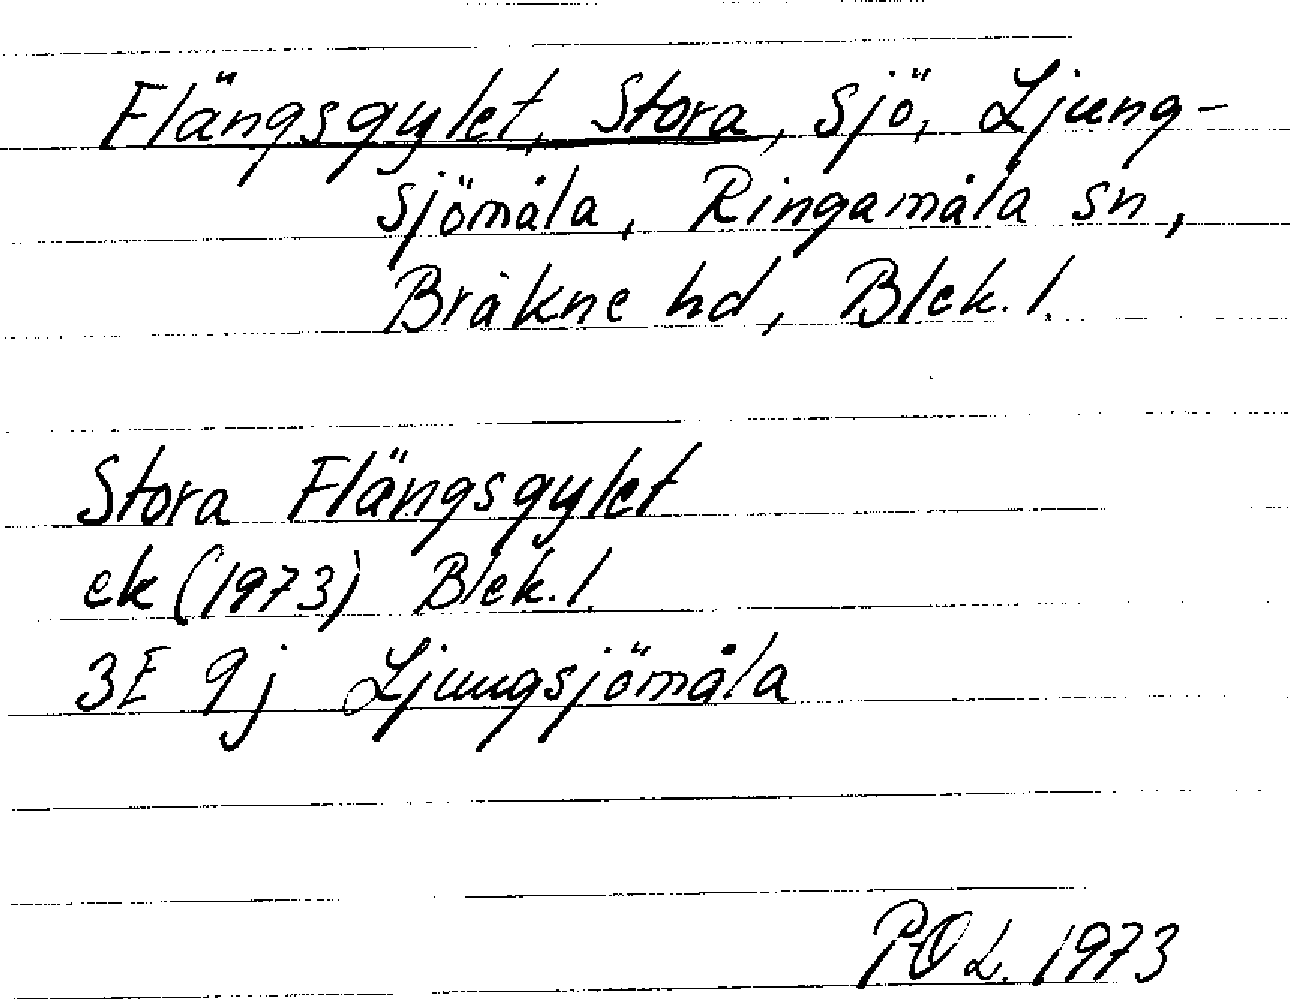 Flängsgylet, Stora, sjö, Ljung-
sjömåla, Ringamåla sn,
Bräkne hd, Blek. l.
Stora Flängsgylet
ek (1973) Blek. l.
3E 9j Ljungsjömåla
POL. 1973